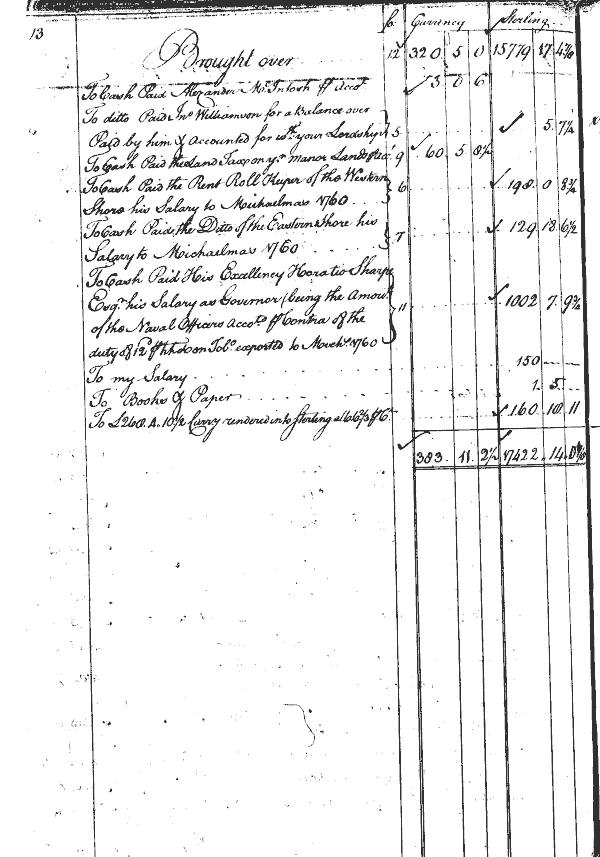 13 fo. Currency Sterling
Brought over 12 320 5 0 15779 17
To Cash Paid Alexander Mc Intosh ⅌ Accot 3 0 6
To ditto Paid Jno Williamson for a Balance over
Paid by him & Accounted for wth your Lordship 5 5. 7¼
To Cash Paid the Land Tax on yr manor Lands 9 60. 5 8½
To Cash Paid the Rent Roll Keeper of the Western
Shore his Salary to Michaelmas 1760 . . 6 198. 0 8¾
To Cash Paid the Ditto of the Eastern Shore his
Salary to Michaelmas 1760 . . . 7 129. 18. 6½
To Cash Paid His Excellency Horatio Sharpe
Esqr. his Salary as Governor being the Amount
of the Naval Officers Accots. ⅌ Contra of the 11 1002 7. 9¾
duty of 12d ⅌ hhd on Tobo. exported to Michs. 1760
To my Salary . . . . . . 150 — —
To Books & Paper . . . . . . 1. 5. —
To £268. 4. 10½ Curry rendered into Sterling at 66⅔ ⅌ Ct. 160. 18. 11
383. 11. 2½ 17422. 14.